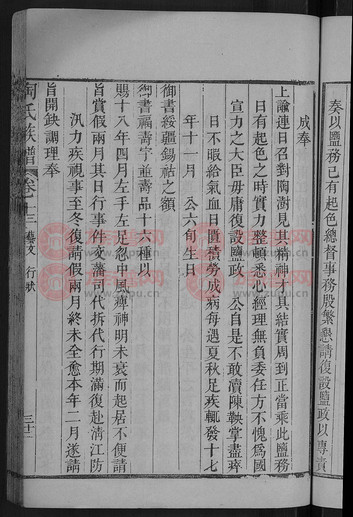 奏以鹽務已有起色總督事務殷繁懇請復設鹽政以專責
成奉
上諭連日召對陶澍見其精神才具結實周到正當乘此鹽務
日有起色之時實力整頓悉心經理無負委任方不愧爲國
宣力之大臣毋庸復設鹽政 公自是不敢瀆陳鞅掌盡瘁
日不暇給氣血日匱積勞成病每遇夏秋足疾輒發十七
年十一月 公六旬生日
御書綏疆錫祜之額
御書福壽字並壽品十六種以
賜十八年四月左手左足忽中風痺神明未衰而起居不便請
旨賞假兩月其日行事件交藩司代拆代行期滿復赴清江防
汛力疾視事至冬復請假兩月終未全愈本年二月遂請
旨開缺調理奉
陶氏族譜 卷十三 藝文 行狀 三十二